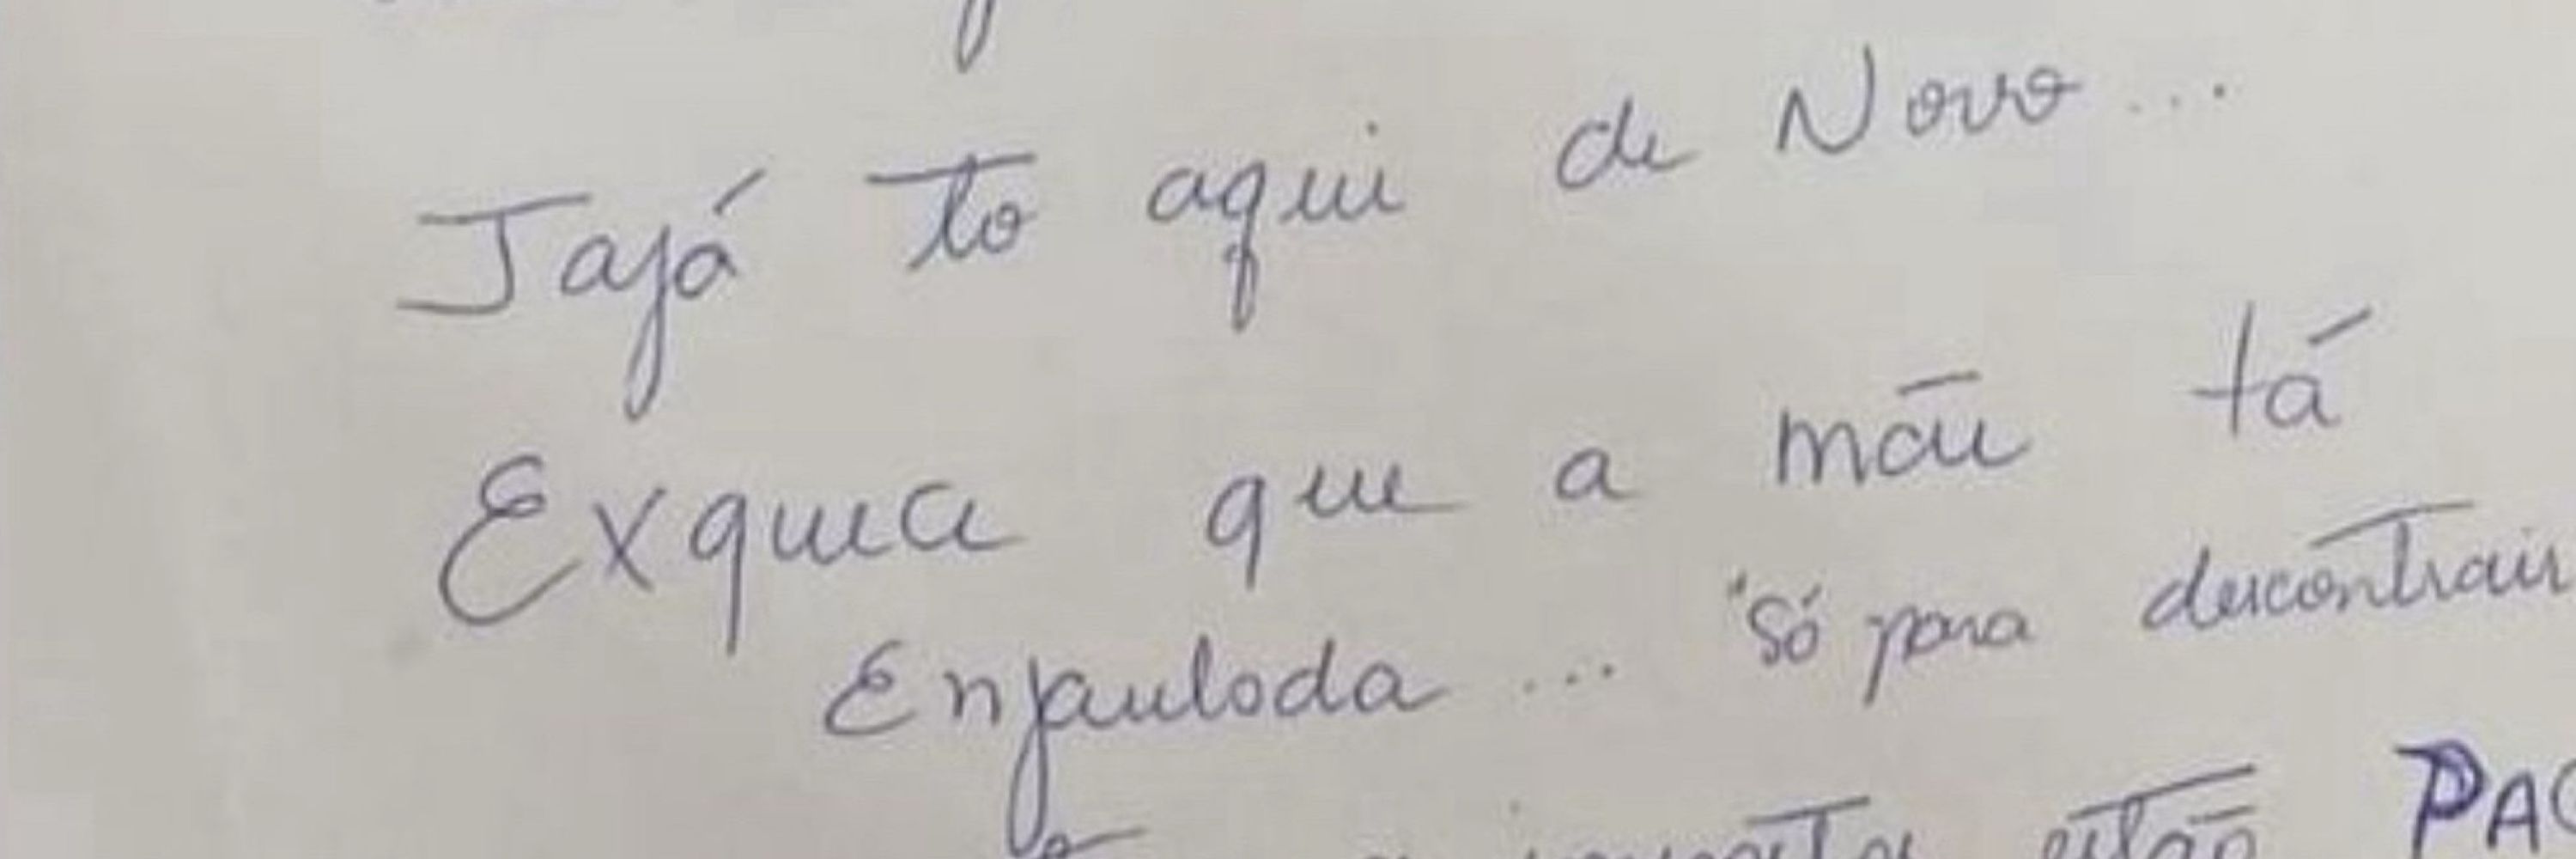 Jajá to aqui de Novo...
Exquece que a mãe tá
Enjaulada... "Só para descontrair
estão PAG